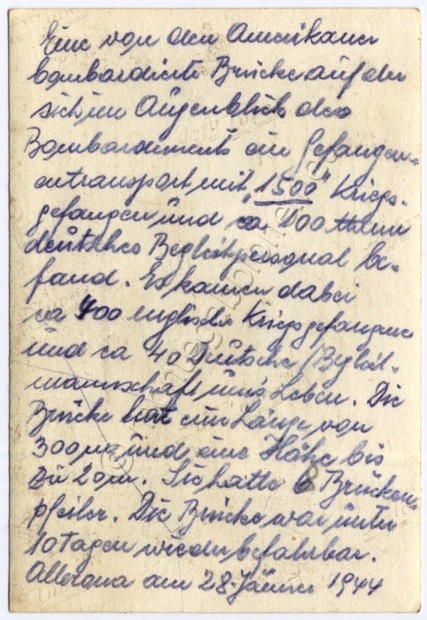 Eine von den Amerikaner
bombardierte Brücke auf der
sich im Augenblick des
Bombardements ein Gefangen-
entransport mit "1500" Kriegs-
gefangen und ca 100
deutsches Begleitpersonal be-
fand. Es kamen dabei
ca 400 englische Kriegsgefangene
und ca 40 Deutsche/Begleit-
mannschaft ums Leben. Die
Brücke hat eine Länge von
300m und eine Höhe bis
zu 20m. Sie hatte 6 Brücken
pfeiler. Die Brücke war unter
10 Tagen wieder befahrbar.
Allerona am 28. Jänner 1944